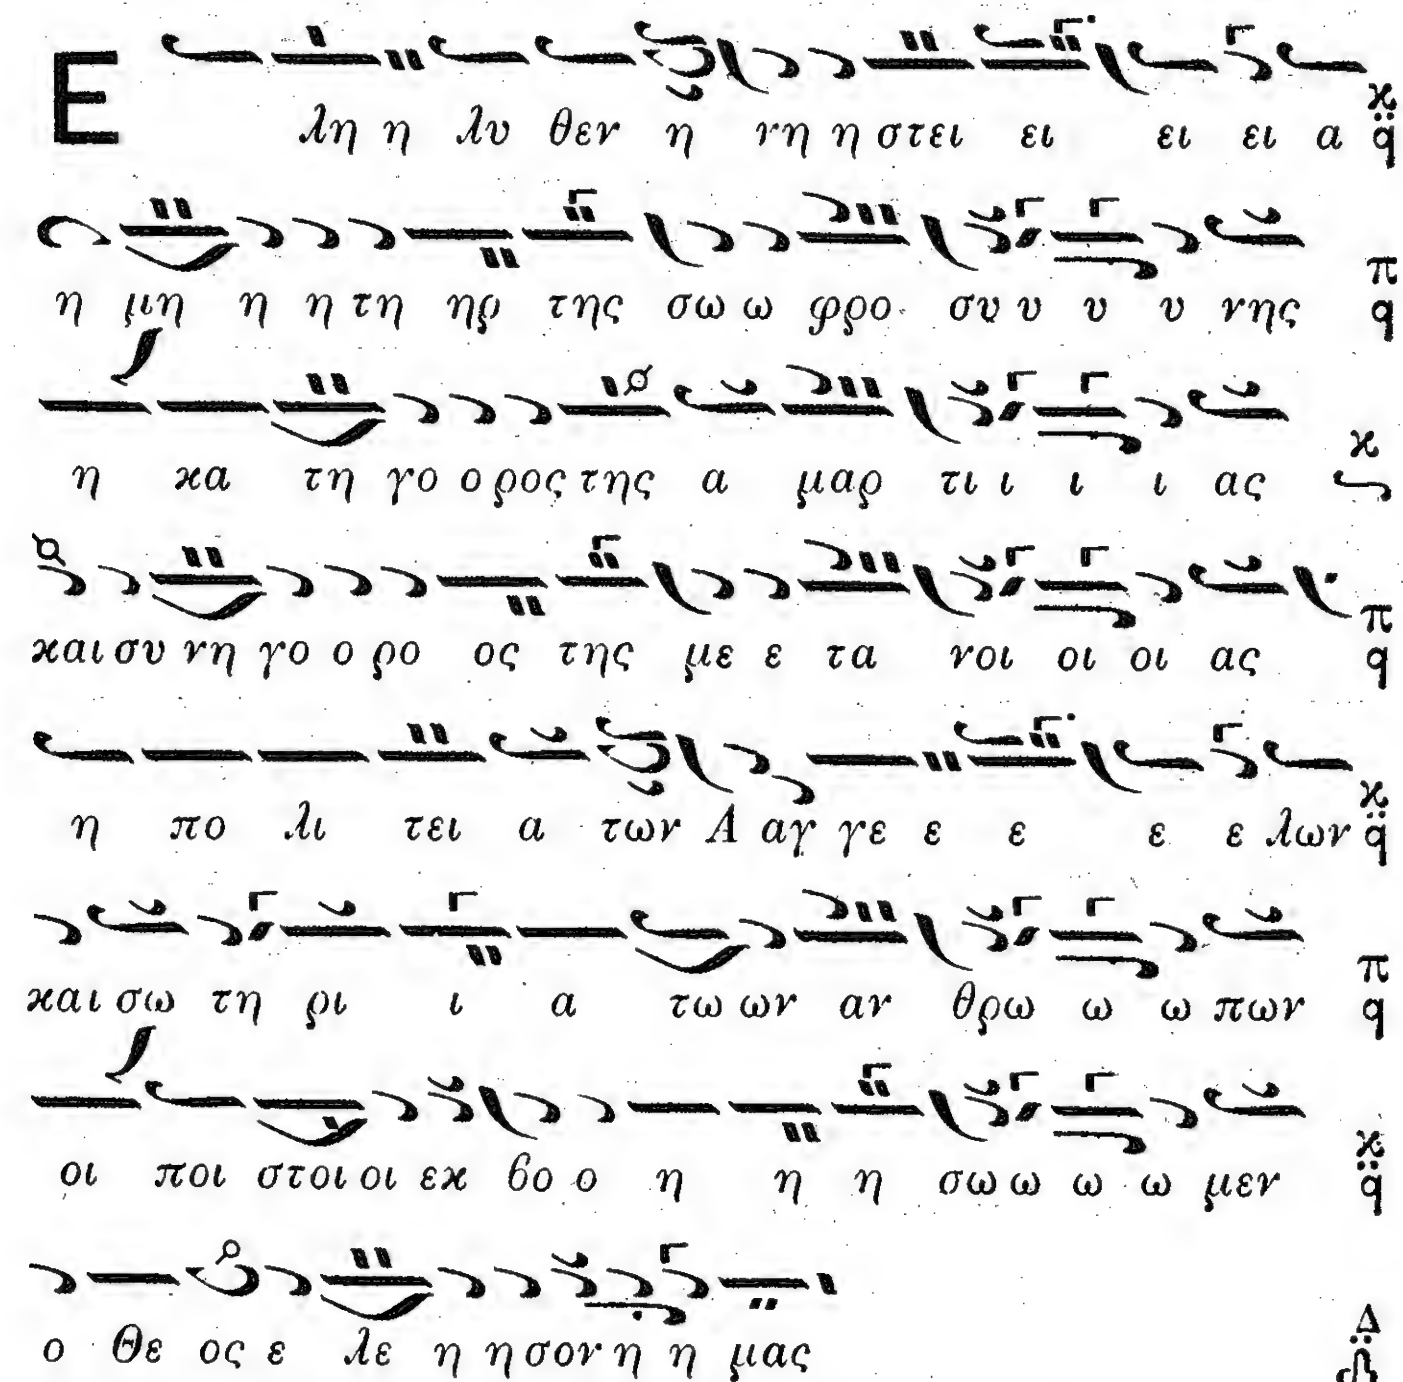 Ε λη η λυ θεν η νη η στει ει ει ει α ϰ q
η μη η η τη ηρ της σω ω φρο συ υ υ υ νης π q
η κα τη γο ο ρος της α μαρ τι ι ι ι ας ϰ
και συ νη γο ο ρο ος της με ε τα νοι οι οι ας π q
η πο λι τει α των Α αγ γε ε ε ε ε λων ϰ q
και σω τη ρι ι α τω ων αν θρω ω ω πων π q
οι ποι στοι οι εκ βο ο η η η σω ω ω ω μεν ϰ q
ο Θε ος ε λε η η σον η η μας Δ